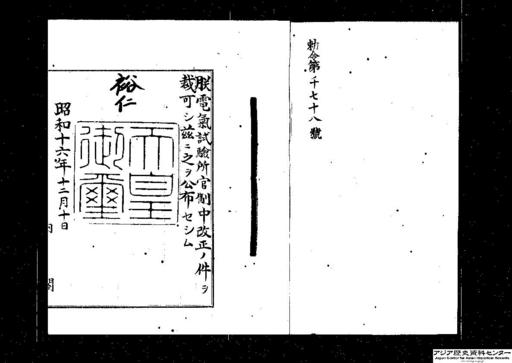 勅令第千七十八號
朕電氣試驗所官制中改正ノ件ヲ
裁可シ茲ニ之ヲ公布セシム
裕仁
天皇
御璽
昭和十六年十二月十日
内閣
アジア歴史資料センター
Japan Center for Asian Historical Records